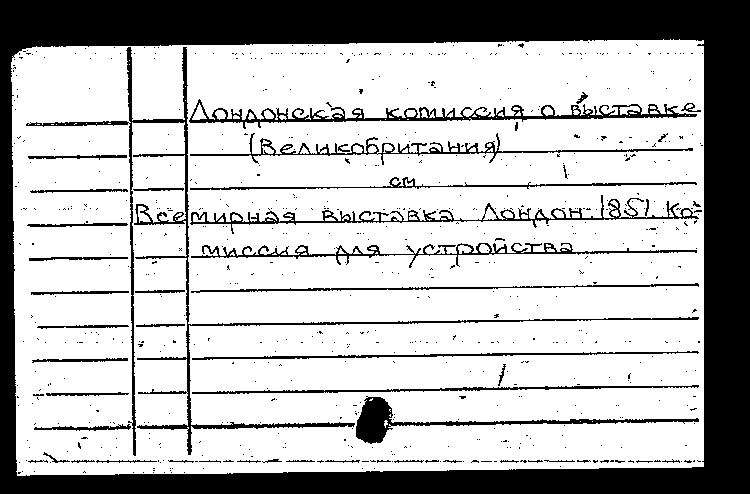 Лондонская комиссия о выставке
(Великобритания)
см.
Всемирная выставка. Лондон. 1851. Ко-
миссия для устройства